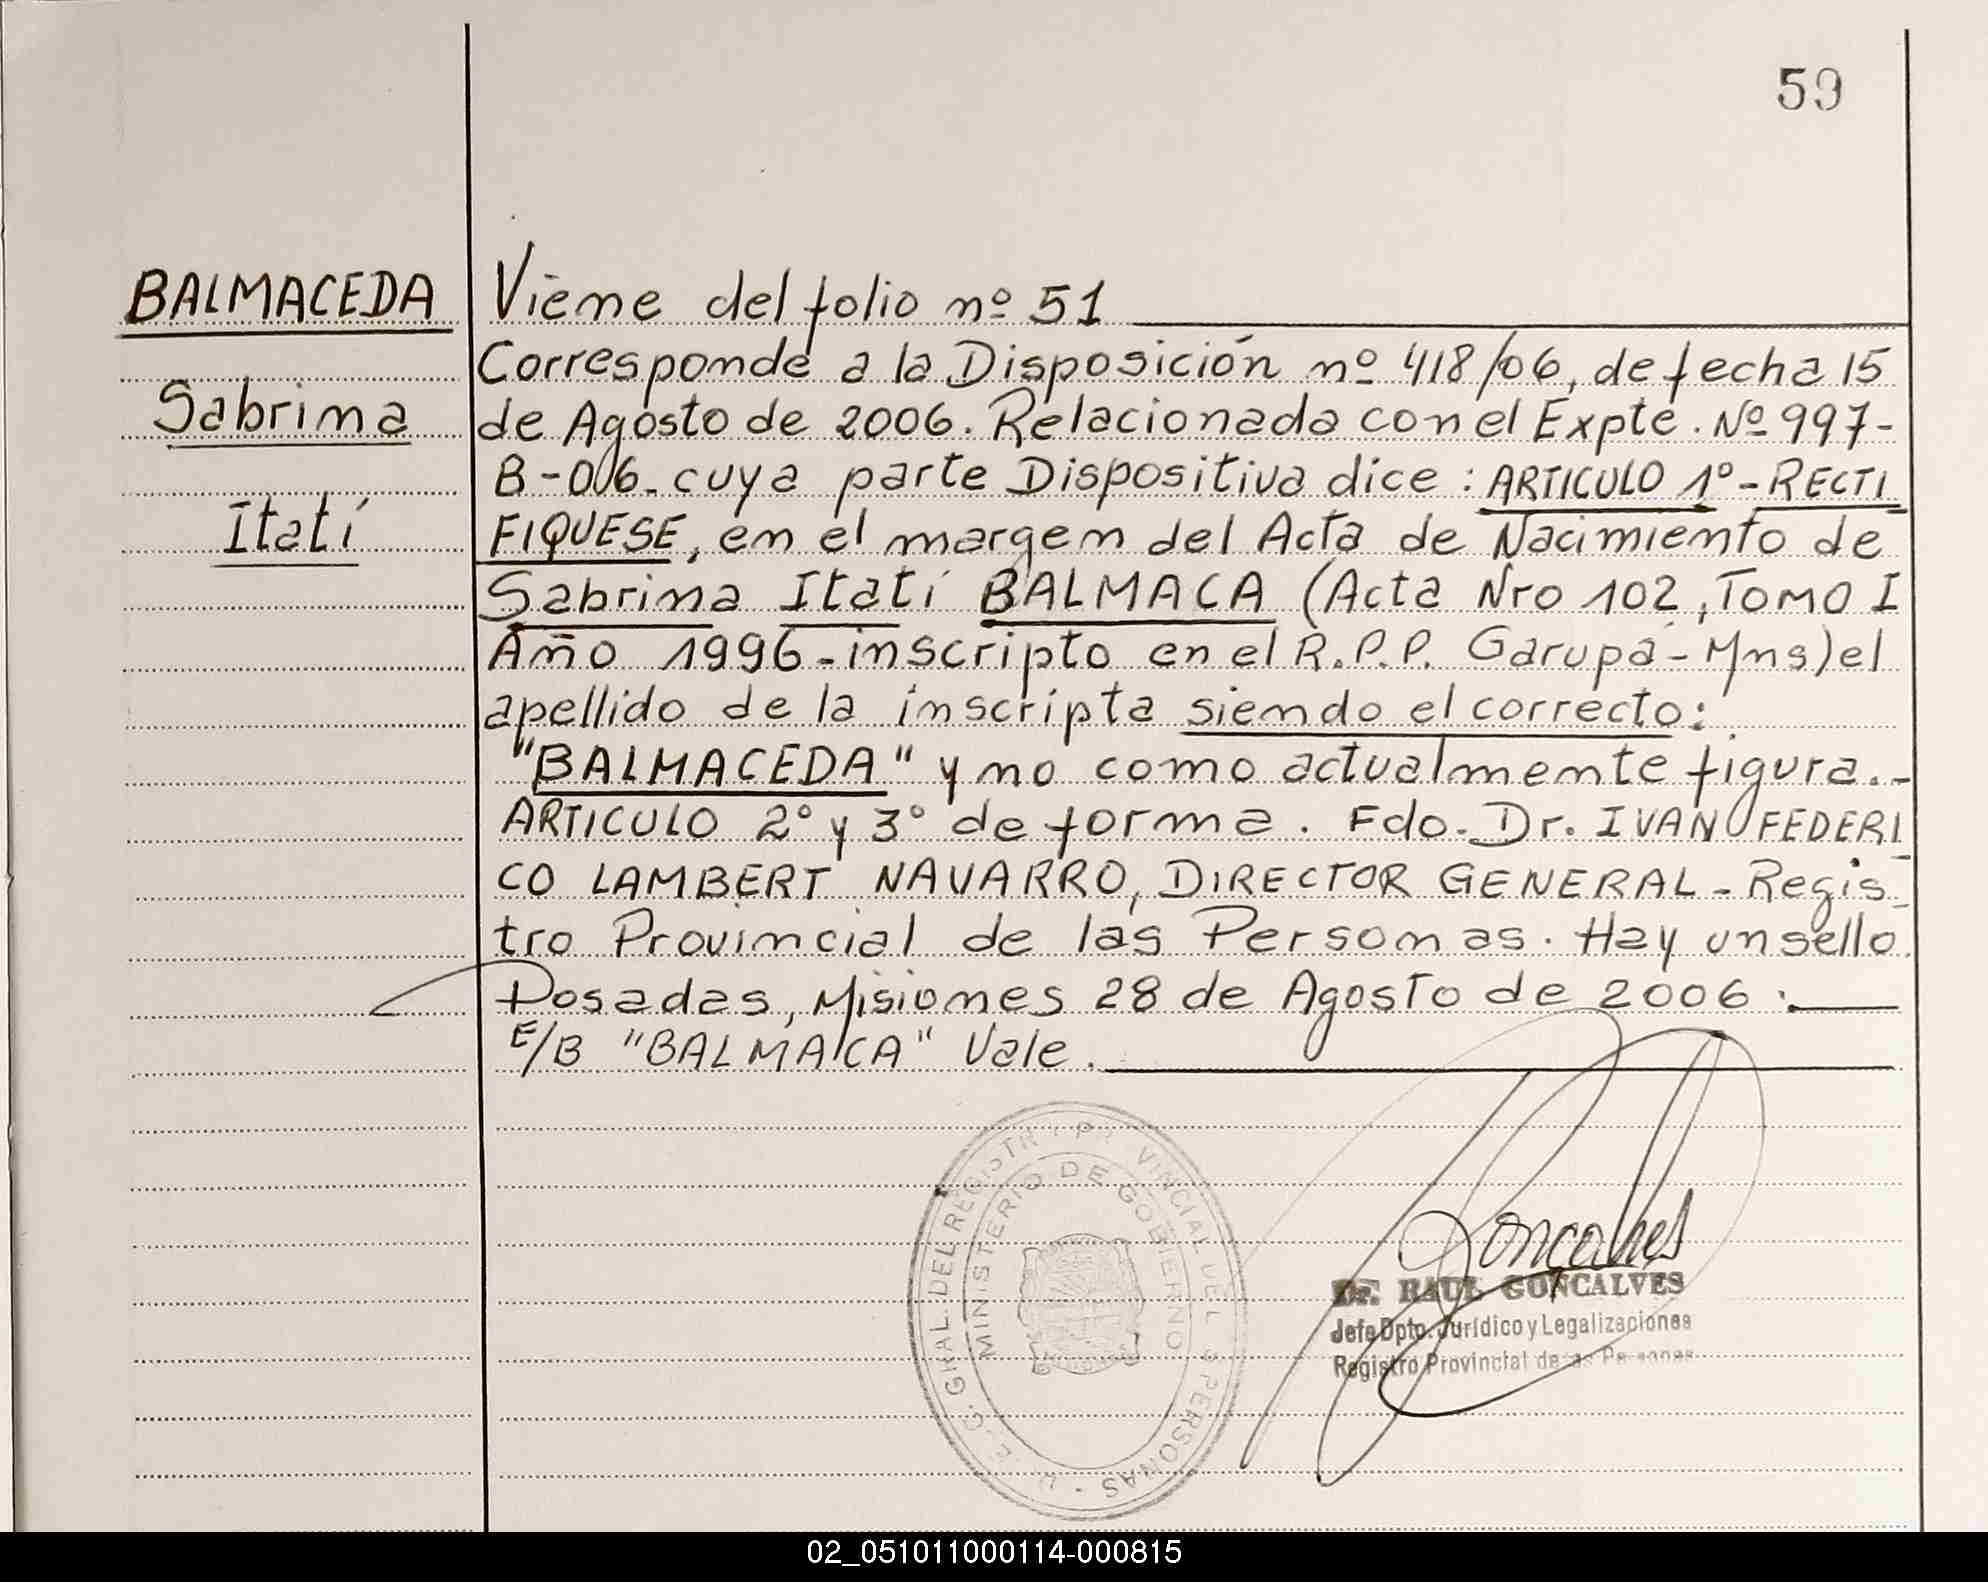 59
BALMACEDA
Sabrina
Itatí
Viene del folio nº 51
Corresponde a la Disposición nº 418/06, de fecha 15
de Agosto de 2006. Relacionada con el Expte. Nº 997-
B-006. cuya parte Dispositiva dice: ARTICULO 1º-RECTI
FIQUESE, en el margen del Acta de Nacimiento de
Sabrina Itatí BALMACA (Acta Nro 102, TOMO I
Año 1996-inscripto en el R.P.P. Garupá-Mns) el
apellido de la inscripta siendo el correcto:
"BALMACEDA" y no como actualmente figura.-
ARTICULO 2º y 3º de forma. Fdo. Dr. IVAN FEDERI
CO LAMBERT NAVARRO, DIRECTOR GENERAL-Regis_
tro Provincial de las Personas. Hay un sello.
Posadas, Misiones 28 de Agosto de 2006.
E/B "BALMACA" Vale.
GRAL. DEL REGISTRO PROVINCIAL DE LAS PERSONAS
MINISTERIO DE GOBIERNO
Goncalves
Dr. RAUL GONCALVES
Jefe Dpto. Jurídico y Legalizaciones
Registro Provincial de las Personas
02_051011000114-000815